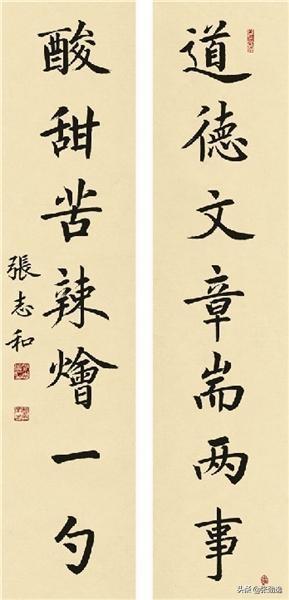 道德文章耑两事
酸甜苦辣燴一勺
張志和
头条